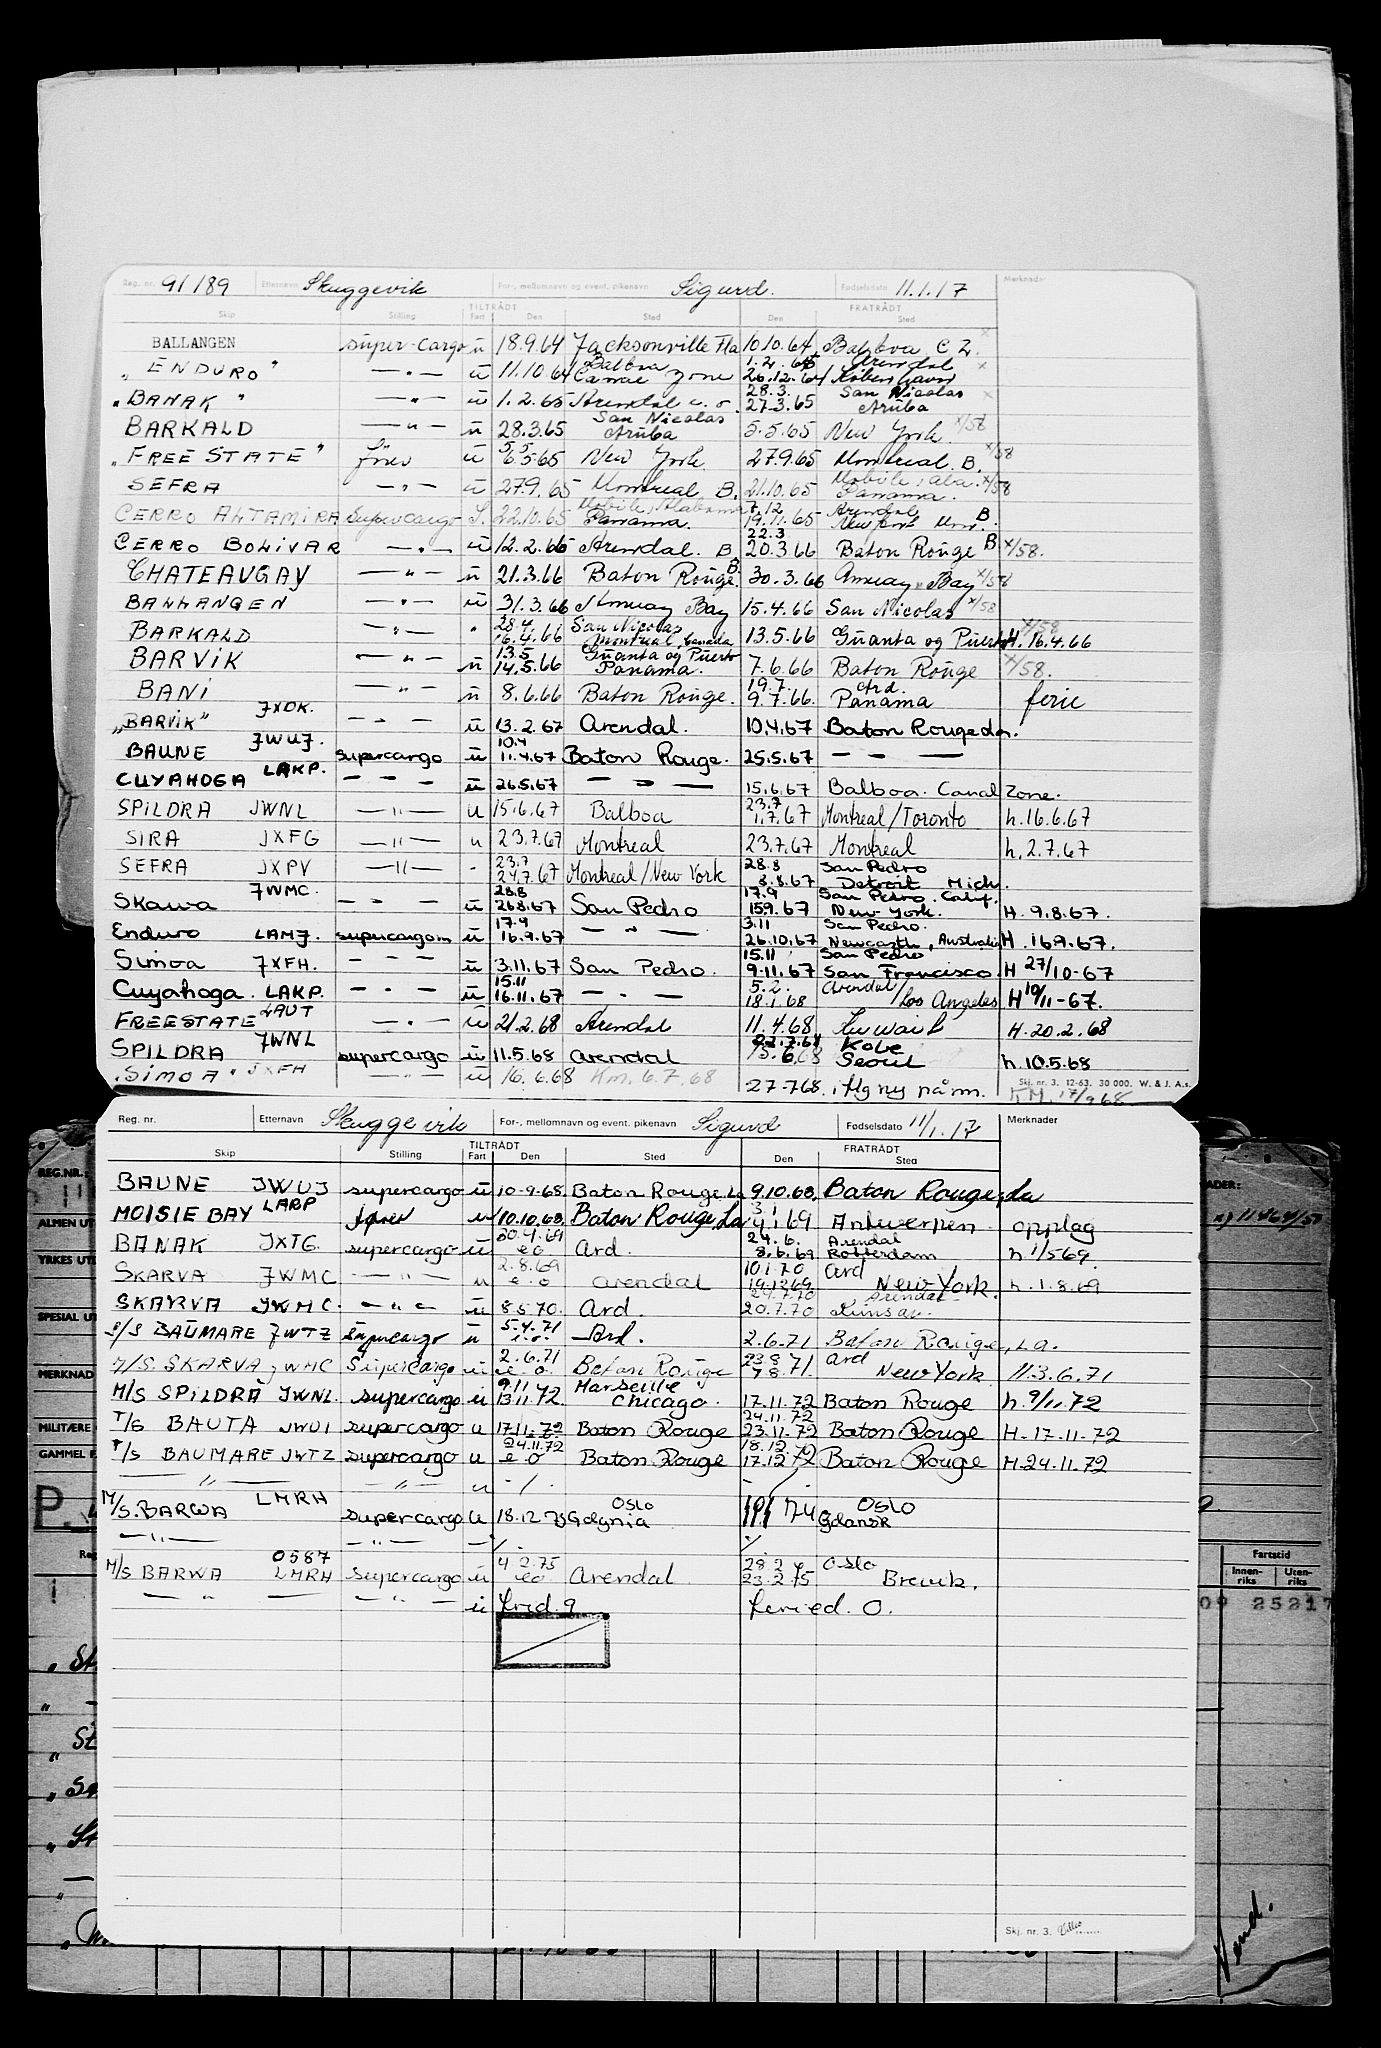 Reg. nr. 91189 Etternavn Skuggevik For-, mellomnavn og event. pikenavn Sigurd. Fødselsdato 11.1.17 Merknader
TILTRÅDT FRATRÅDT
Skip Stilling Fart Den Sted Den Sted
BALLANGEN super-cargo u 18.9.64 Jacksonville Fla 10.10.64 Balboa C Z. x
"ENDURO" —"— u 11.10.64 Balboa Canal Zone 1.2.65 Arendal 26.12.64 København x
"BANAK" —"— u 1.2.65 Arendal e.o. 28.3. 27.3.65 San Nicolas Aruba x
BARKALD —"— u 28.3.65 San Nicolas Aruba 5.5.65 New York x/58
"FREE STATE" fører u 5.5 6.5.65 New York 27.9.65 Montreal B. x/58
SEFRA —"— u 27.9.65 Montreal B. 21.10.65 Mobile, Ala. Panama. x/58
CERRO ALTAMIRA supercargo 22.10.65 Mobile, Alabama Panama. 7.12 19.11.65 Arendal B.
CERRO BOLIVAR —"— u 12.2.66 Arendal. B 22.3 20.3.66 Baton Rouge B x/58.
CHATEAUGAY —"— u 21.3.66 Baton Rouge B. 30.3.66 Amuay Bay x/58
BALLANGEN —"— u 31.3.66 Amuay Bay 15.4.66 San Nicolas x/58
BARKALD —"— " 28.4 16.4.66 San Nicolas Montreal, Canada 13.5.66 Guanta og Puerto H. 16.4.66 x/58
BARVIK —"— u 13.5 14.5.66 Guanta og Puerto Panama. 7.6.66 Baton Rouge x/58.
BANI —"— u 8.6.66 Baton Rouge. 19.7 9.7.66. Ard. Panama ferie
"BARVIK" JXDK. —"— u 13.2.67 Arendal. 10.4.67 Baton Rouge La.
BAUNE JWUJ. supercargo u 10.4 11.4.67 Baton Rouge. 25.5.67 — — —
CUYAHOGA LAKP. — " — u 26.5.67 — " — 15.6.67 Balboa. Canal Zone.
SPILDRA JWNL —"— u 15.6.67 Balboa 23.7 1.7.67 Montreal/Toronto h. 16.6.67
SIRA JXFG —"— u 23.7.67 Montreal 23.7.67 Montreal h. 2.7.67
SEFRA JXPV —"— - 23.7 24.7.67 Montreal/New York 28.8 8.8.67 San Pedro Detroit Mich.
Skawa JWMC. — " — u 28.8 26.8.67 San Pedro 17.9 15.9.67 San Pedro. Calif. New York. H. 9.8.67.
Enduro LAMJ. supercargo u 17.9 16.9.67 — " — 3.11 26.10.67 San Pedro. Newcastle, Australia H. 16.9.67.
Simoa JXFH. — " — u 3.11.67 San Pedro. 15.11 9.11.67 San Pedro San Francisco. H 27/10-67
Cuyahoga. LAKP. — " — u 15.11 16.11.67 — " — 5.2. 18.1.68 Arendal/Los Angeles H 10/11-67.
FREESTATE LAUT —"— u 21.2.68 Arendal 11.4.68 Kuwait H. 20.2.68
SPILDRA JWNL supercargo u 11.5.68 Arendal 15.6.68 Kobe Seoul h. 10.5.68
"SIMOA" JXFH —"— u 16.6.68 Km. 6.7.68 27-7.68. i flg ny påm. KM. 17/9 68.
Skj. nr. 3. 12-63. 30 000. W. & J. A.s.
Reg. nr. Etternavn Skuggevik For-, mellomnavn og event. pikenavn Sigurd Fødselsdato 11/1.17 Merknader
TILTRÅDT FRATRÅDT
Skip Stilling Fart Den Sted Den Sted
BAUNE JWUJ supercargo u 10-9-68 Baton Rouge, La 9.10.68. Baton Rouge, La
MOISIE BAY LARP fører u 10.10.68. Baton Rouge, La 3.1 4.1.69 Antwerpen opplag
BANAK JXTG. supercargo u 30.4.69 e.o Ard. 24.6. 8.6.69 Arendal Rotterdam h 1/5 69.
SKARVA JWMC —"— u 2.8.69 e.o Arendal 10.1.70 19.12.69 Ard New York. h. 1.8.69
SKARVA JWMC. — " — u 8.5.70. Ard. 24.7.70 20.7.70 Arendal
S/S BAUMARE JWTZ Supercargo u 5.4.71 e.o. Ard. 2.6.71 Baton Rouge, La.
M/S. SKARVA JWMC Supercargo u 2.6.71 e.o. Baton Rouge 23.8 7.8.71 Ard New York 11.3.6.71
M/S SPILDRA JWNL. supercargo u 9.11 13.11.72. Marseille Chicago. 17.11.72 Baton Rouge h. 9/11.72
T/S BAUTA JWUI supercargo u 17.11.72 Baton Rouge 24.11.72 23.11.72 Baton Rouge H-17-11-72
T/S BAUMARE JWTZ supercargo u 24.11.72 e.o Baton Rouge 18.12. 17.12.72 Baton Rouge H-24.11.72
—"— —"— u - / . - /
M/S. BARWA LMRH supercargo u 18.12.73 Oslo Gdynia 74 Oslo Gdansk
—"— —"— — /. /.
M/S BARWA 0587 LMRH supercargo u 4.2.75 e.o Arendal 28.2 23.2.75 Oslo Brevik.
—"— —"— u frid. 9 feried. 0.
Skj. nr. 3.
REG.NR.:
ALMEN UT
YRKES UTD
SPESIAL UT
MERKNAD
MILITÆRE
GAMMEL F.
P.
ADER:
Fartstid
Innen-riks Uten-riks
09 25217
Vend.